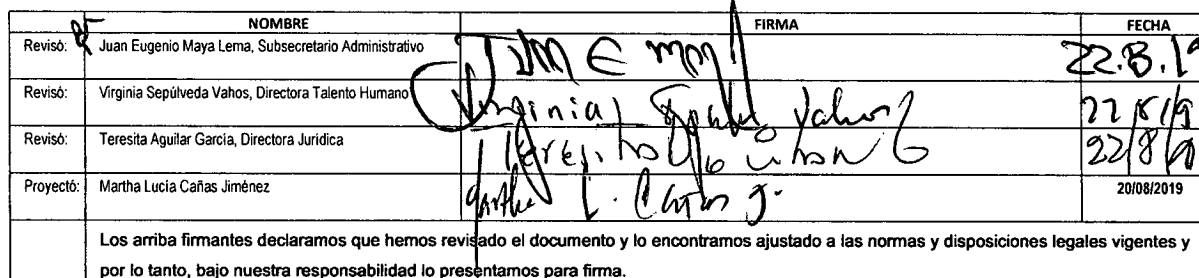 NOMBRE FIRMA FECHA
Revisó: Juan Eugenio Maya Lema, Subsecretario Administrativo 22.8.19
Revisó: Virginia Sepúlveda Vahos, Directora Talento Humano Virginia Vahos 22/8/19
Revisó: Teresita Aguilar García, Directora Jurídica Teresita 22/8/19
Proyectó: Martha Lucía Cañas Jiménez Martha L. Cañas J. 20/08/2019
Los arriba firmantes declaramos que hemos revisado el documento y lo encontramos ajustado a las normas y disposiciones legales vigentes y
por lo tanto, bajo nuestra responsabilidad lo presentamos para firma.